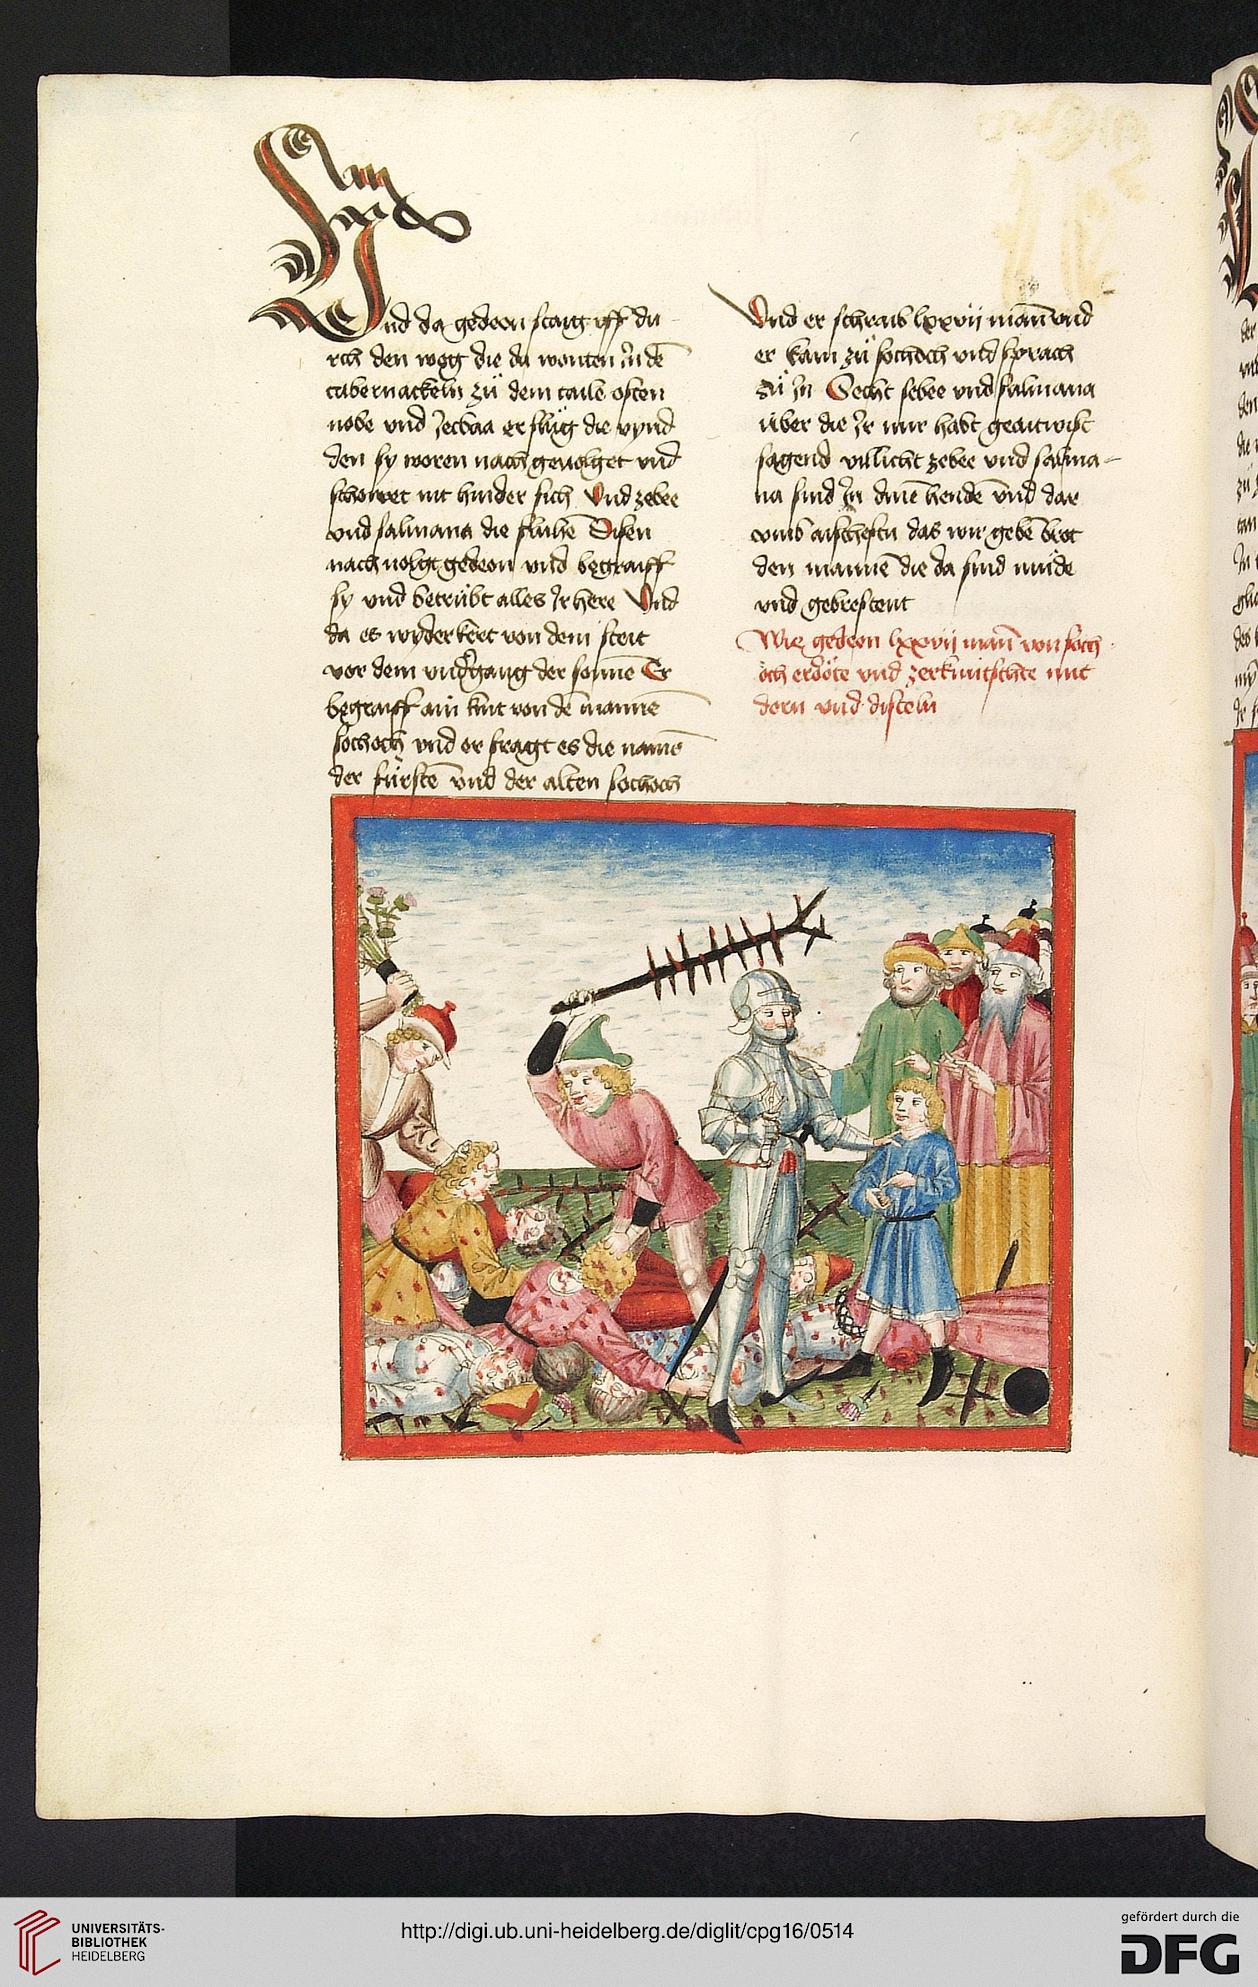 Und da gedeon staig vff du
rch den weg die da wonten Jn dē
tabernackeln zů dem tailē osten
nobe vnd Jecbaa er slůg die vynd
den sy woren nach geuolget vnd
schowet nit hinder sich Vnd zebee
vnd salmana die fluhē Disen
nach uolgt gedeon vnd begraiff
sy vnd betrübt alles Jr here Vnd
da es wyder kert von dem streit
vor dem vndgang der sonne Er
begraiff ain kint von dē mannē
sochoch vnd er fragt es die namē
der fürstē vnd der alten sochoch
Vnd er schraib lxxvij man vnd
er kam zů sochoch vnd sprach
zů Jn Secht sebee vnd salmana
über die Jr mir habt geaitwist
sagend villicht zebee vnd salma-
na sind Jn dinē hendē vnd dar
vmb aischestu das wir gebē brot
den mannē die da sind müde
vnd gebrestent
Wie gedeon lxxvij man von soch
och erdöte vnd zerknütschte mit
dorn vnd disteln
UNIVERSITÄTS-
BIBLIOTHEK
HEIDELBERG
http://digi.ub.uni-heidelberg.de/diglit/cpg16/0514
gefördert durch die
DFG